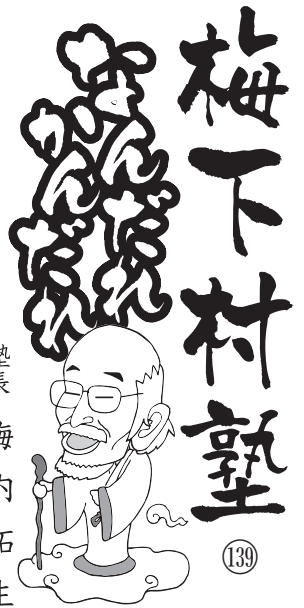 梅下村塾
139
なんだれ
かんだれ
塾長 梅内拓生